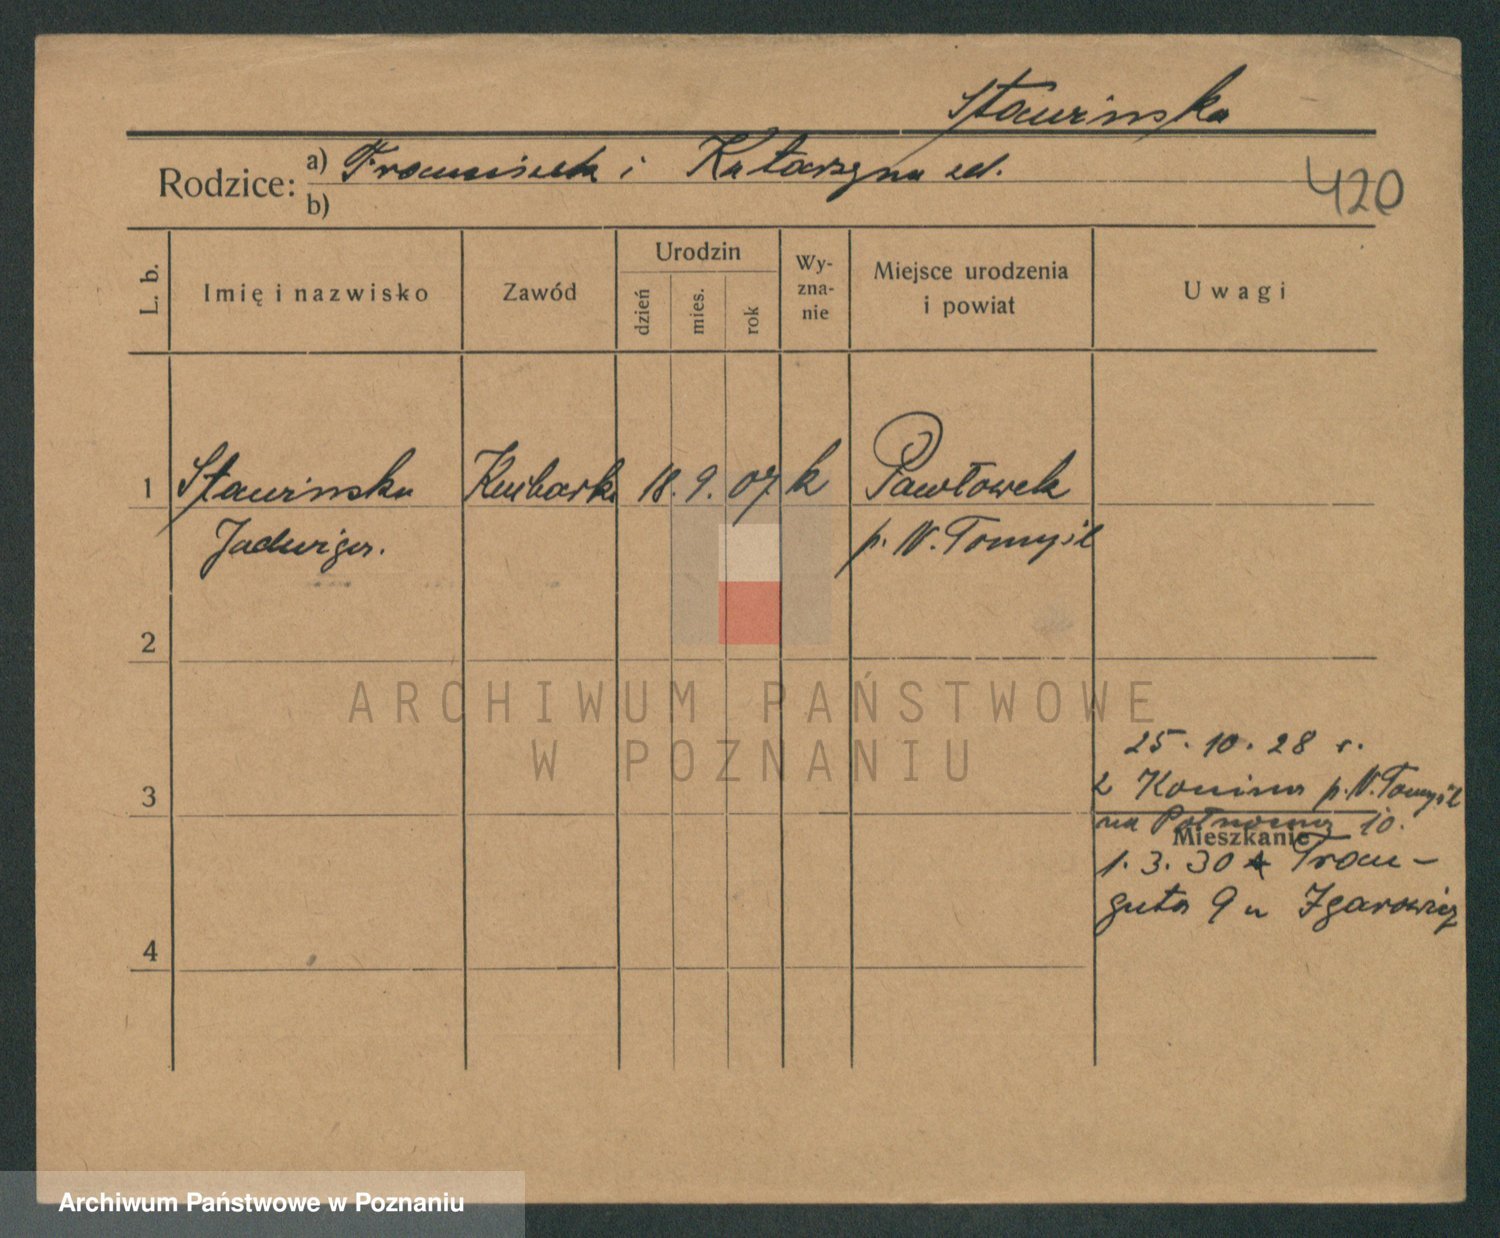 Stawinska
Rodzice: a) Franciszek i Katarzyna zd.
b)
420
L. b.
Imię i nazwisko
Zawód
Urodzin
dzień
mies.
rok
Wy-
zna-
nie
Miejsce urodzenia
i powiat
Uwagi
1 Stawinska Kucharka 18. 9. 07. k Pawłówek
Jadwiga. p. N. Tomyśl
2
ARCHIWUM PAŃSTWOWE
W POZNANIU
25. 10. 28 r.
3 z Konina p. N. Tomyśl
na Północna 10.
Mieszkanie
1. 3. 30 Trau-
guta 9 u
4
Archiwum Państwowe w Poznaniu